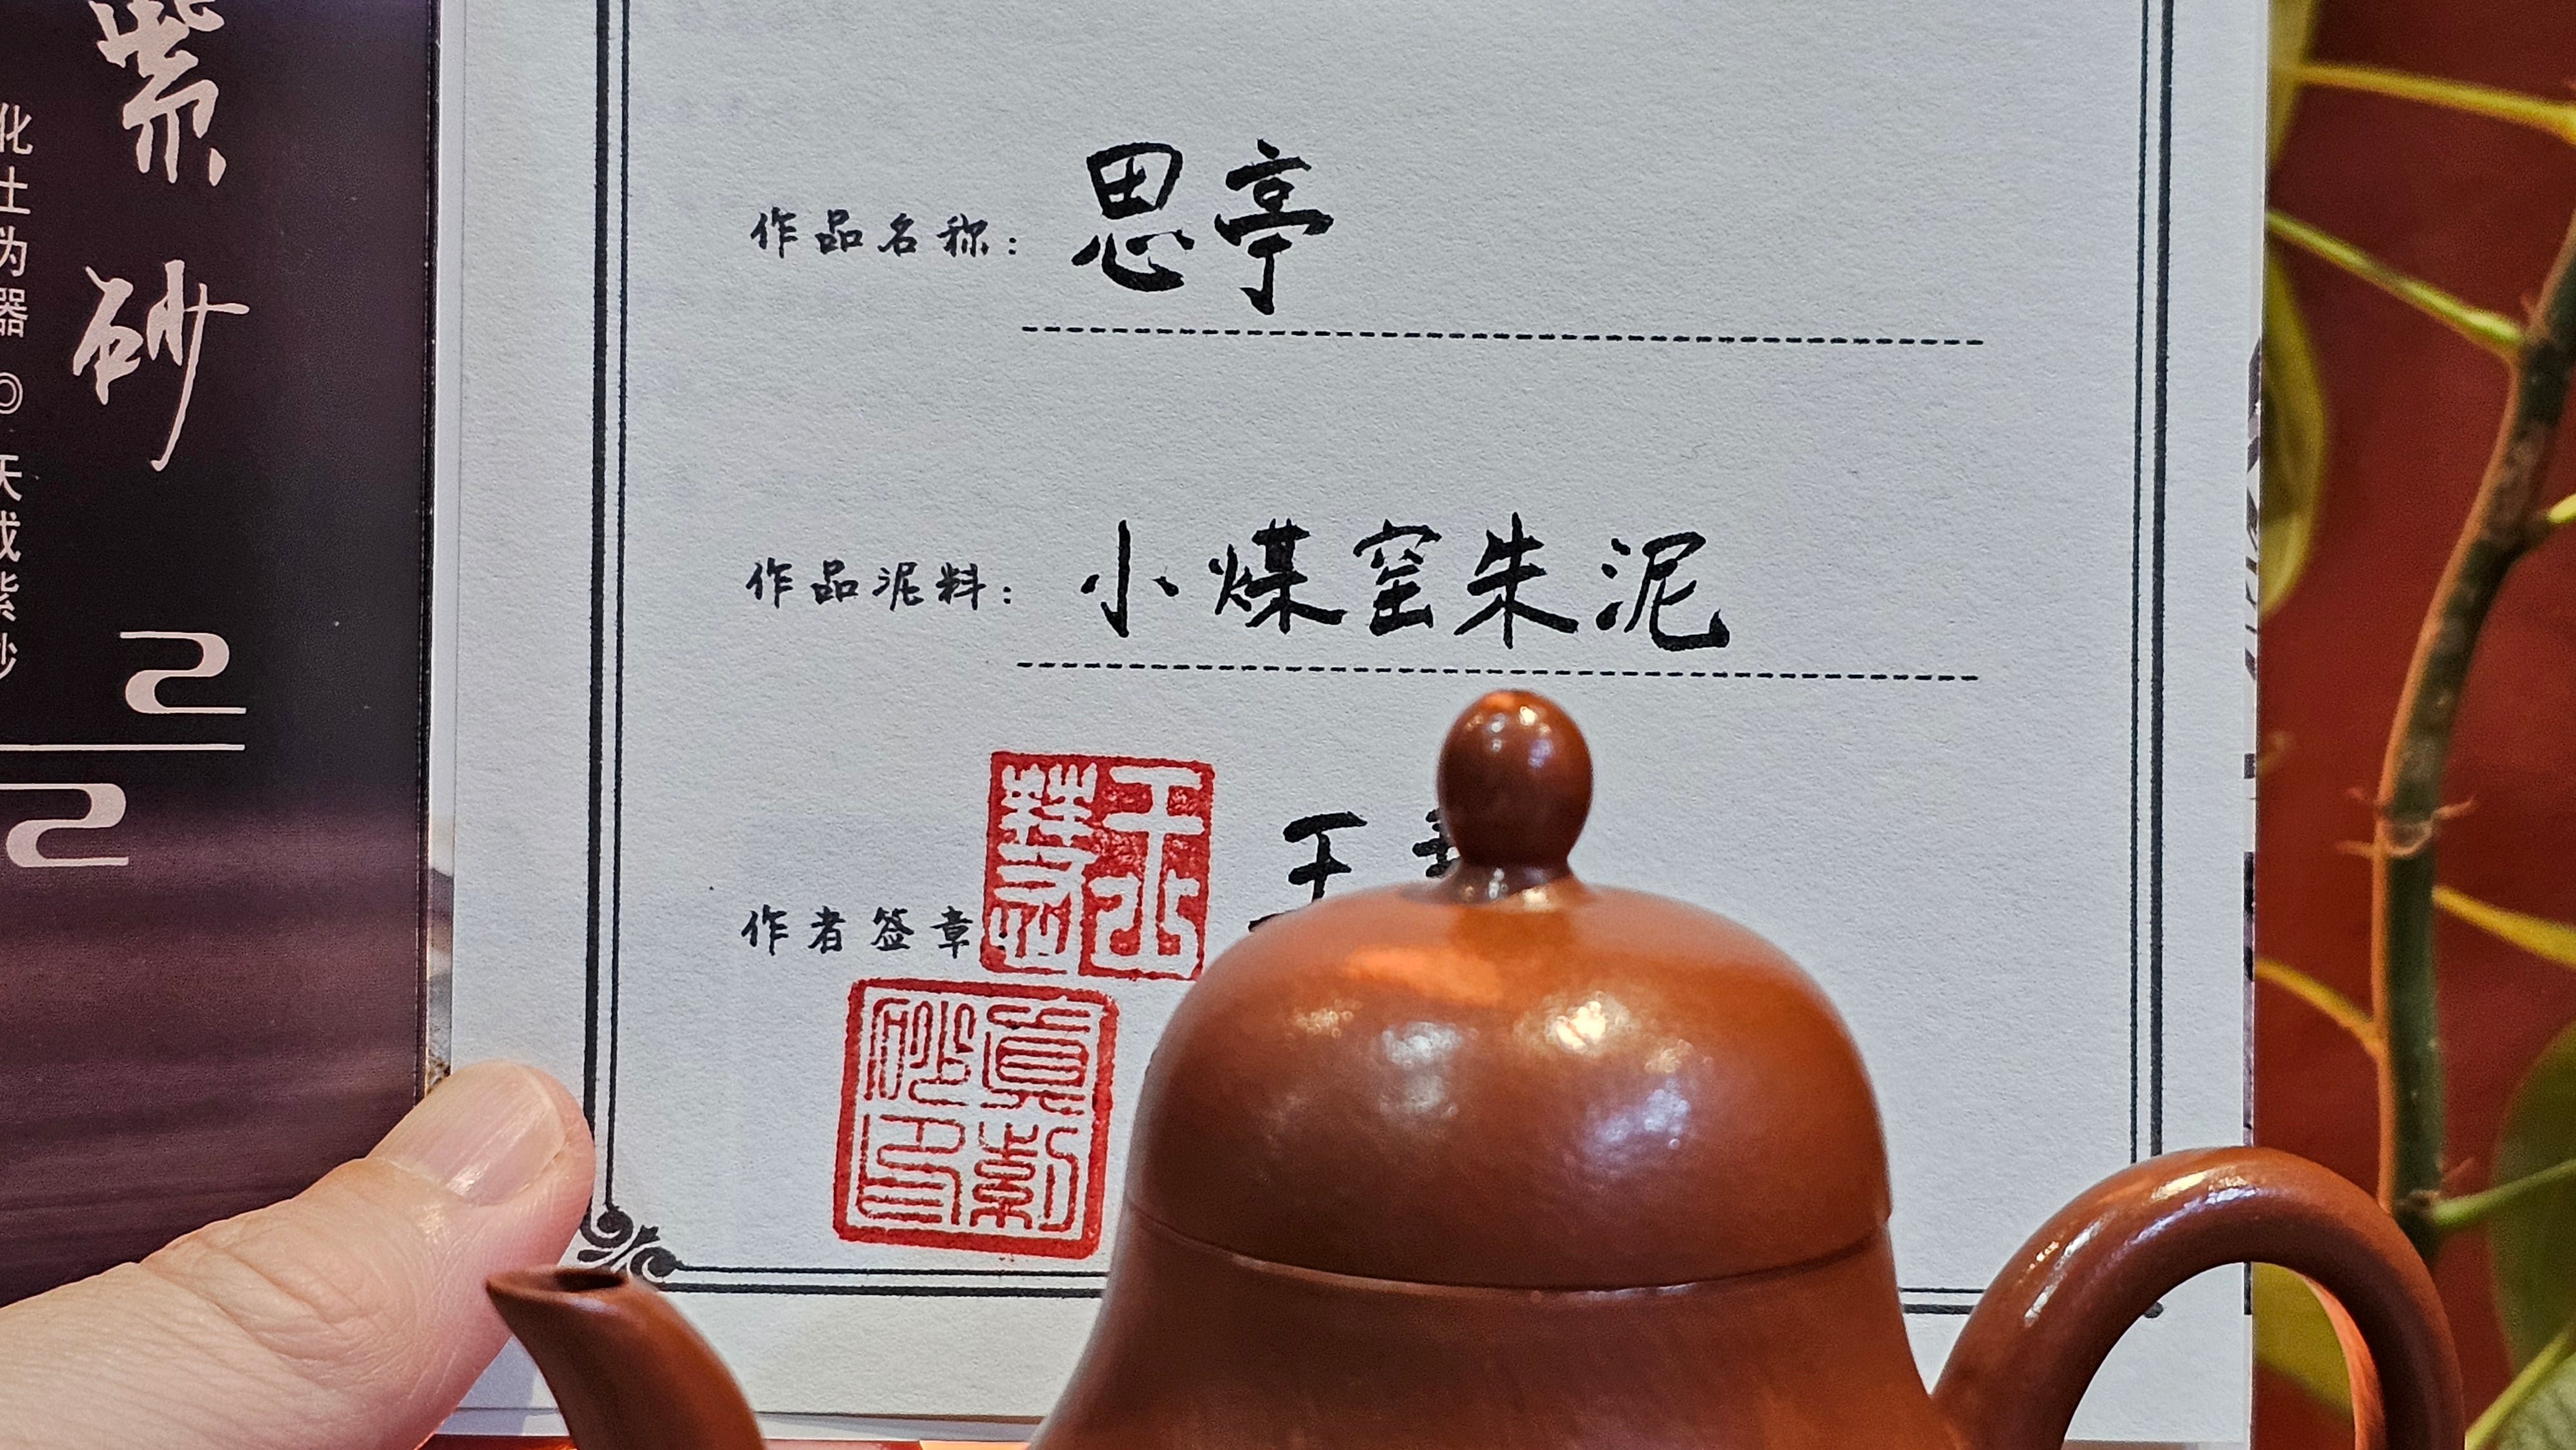 紫砂
化土为器 ◎ 天成紫砂
作品名称： 思亭
作品泥料： 小煤窑朱泥
作者签章
真紫
砂印